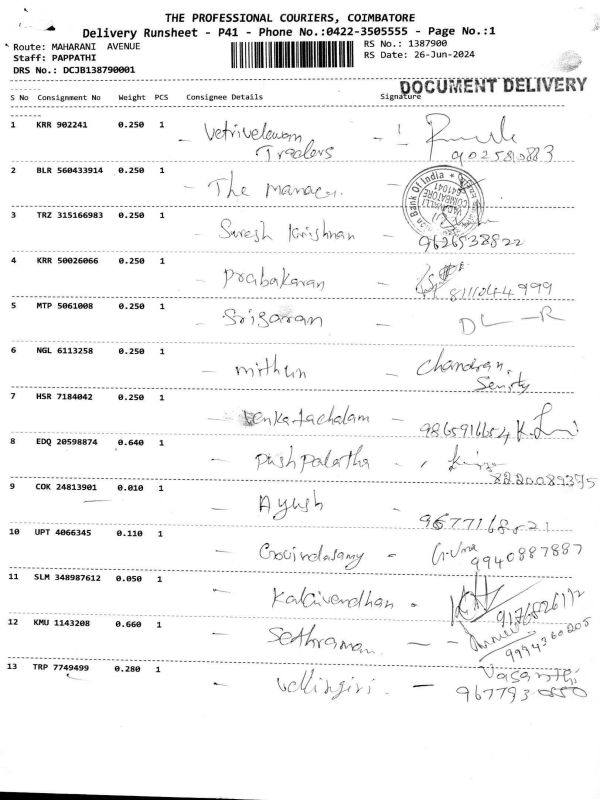 THE PROFESSIONAL COURIERS, COIMBATORE
Delivery Runsheet - P41 - Phone No.:0422-3505555 - Page No.:1
Route: MAHARANI AVENUE
RS No.: 1387900
Staff: PAPPATHI
RS Date: 26-Jun-2024
DRS No.: DCJB138790001
DOCUMENT DELIVERY
S No Consignment No Weight PCS Consignee Details Signature
1 KRR 902241 0.250 1
Vetrivelavan
Traders
2 BLR 560433914 0.250 1
- The Manager.
Bank Of India
COIMBATORE
641041
3 TRZ 315166983 0.250 1
- Suresh Krishnan - 9626538822
4 KRR 50026066 0.250 1
- Prabakaran - 8111044999
5 MTP 5061008 0.250 1
- Srisaran - DL-R
6 NGL 6113258 0.250 1
- mithun - Chandran.
7 HSR 7184042 0.250 1
- Venkatachalam - 9865916654
8 EDQ 20598874 0.640 1
- Pushpalatha - 8220089395
9 COK 24813901 0.010 1
- Ayush - 9677168521
10 UPT 4066345 0.110 1
- Govindasamy - 9940887887
11 SLM 348987612 0.050 1
- Kalaivendhan - 9176826112
12 KMU 1143208 0.660 1
- Sethraman - 9994360205
13 TRP 7749499 0.280 1
- Vellingiri - Vasanthi